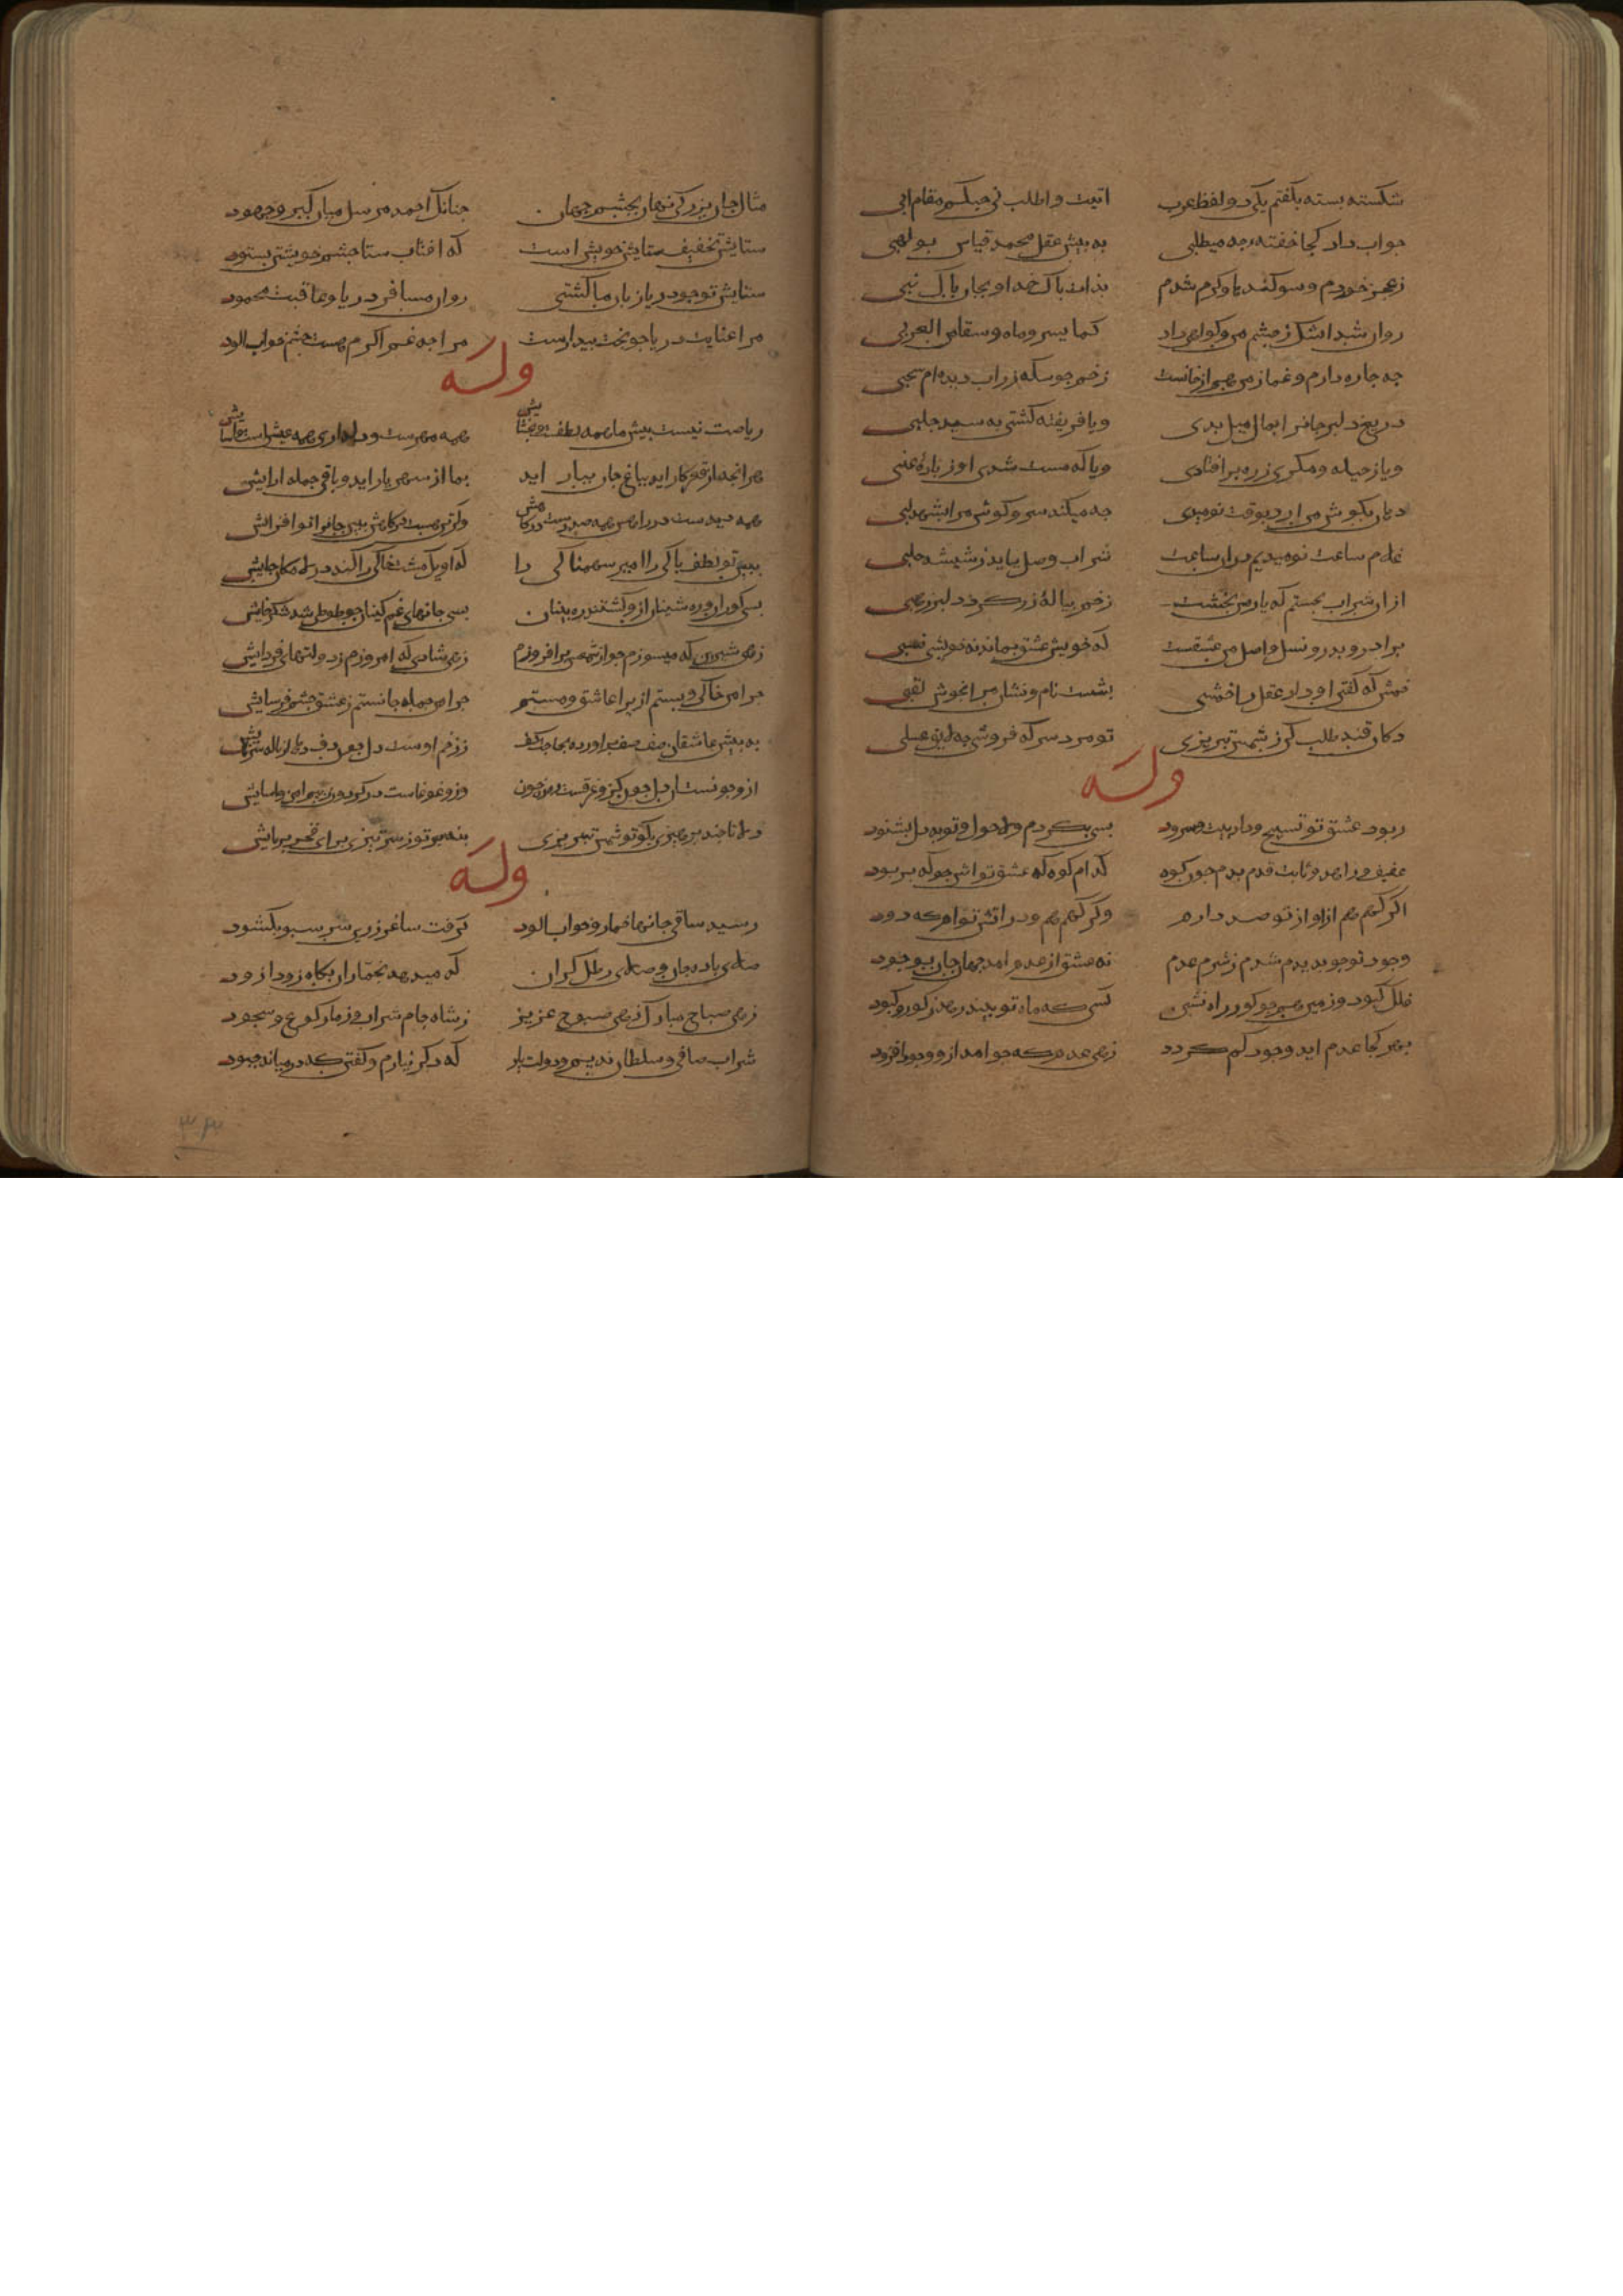 شکسته بسته بکفتم یکی دو لفظ عرب اتیت واطلب فی حبکم مقام ابی
جواب داد کجا خفتهٔ چه میطلبی به پیش عقل محمد قیاس بولهبی
زعجز خوردم وسوکند یا وکرم شدم بذات باک خدا و بجان باک نبی
روان شد اشک زچشم من وکواهی داد کما یسر وماه وسقاس العربی
جه جاره دارم وغماز من هم از خانست رخم جو سکه زر اب دیده ام سحبی
دریغ دلبر جانرا بمال میل بدی ویا فریفته کشتی به سید جلبی
ویا زحیله ومکری زره برافتادی ویا که مست شدی او زبادهٔ عنبی
دهان بکوش من ارد بوقت نومیدی جه میکند سر وکوش مرا بشهد لبی
غلام ساعت نومیدیم بدان ساعت شراب وصل بیاید زشیشه حلبی
از ان شراب بجستم که یار می بخشست رخم بیالهٔ زر کرد دلبر زهبی
برادر و بدر ونسل واصل من عشقست که خویش عشق بماند نه خویشی نسبی
خمش که مفخر او داد عقل را خمشی بشست نام ونشان مرا بخوش لقبی
دکان قند طلب کن زشمس تبریزی تو مرد سرکه فروشی چه لایق عسلی
وله
ربود عشق تو تسبیح وداد بیت وسرود بسی بکردم ولاحول وتوبه دل نشنود
عفیف وزاهد وثابت قدم بدم جون کوه کدام کوه که عشق تو اش جو که بربود
اکر کهم هم از اواز تو صدا دارم وکر کهم هم ودر اتش توام که دود
وجود تو جو بدیدم شدم زشرم عدم نه عشق از عدم امد جهان جان بوجود
فلک کبود وزمین هم جو کور راه نشین کسی که ماه تو بیند رهد زکور وکبود
بهر کجا عدم اید وجود کم کردد زهی عدم که جو امد ازو وجود افزود
مثال جان بزرکی نهان بجشم جهان جنانک احمد مرسل میان کبر وجهود
ستایشت بحقیقت ستایش خویش است که افتاب ستا جشم خویشتن بستود
ستایش تو جو دریا زبان ما کشتی روان مسافر دریا وعاقبت محمود
مرا عنایت دریا جو بخت بیدارست مرا جه غم اکرم هست جشم خواب الود
وله
ریاضت نیست بیش ما همه لطف و بخشایش همه مهرست ودلداری همه عیش است واسایش
هر انجه از فقر کار اید بباغ جان ببار اید بما از سهر یار اید وباقی جمله ارایش
همه دیدست در راهش همه صدرست درکاهش وکرتن هست درکاهش ببین جانرا تو افزایش
ببین تو لطف باکی را امیر سهمناکی را که او یک مشت خاکی را کند در لامکان جایش
بسی کوران وره شینان ازو کشتند ره بینان بسی جانهای غم کینان جو طوطی شد شکرخایش
زهی شیرین که میسوزم جو از شمعش برافروزم زهی شادی که امروزم زدولتهای فردایش
جرا من خاکی وبستم ازیرا عاشق ومستم جرا من جمله جانستم زعشق جسم فرسایش
به بیش عاشقان صف صف براورده بحاجت کف زرخم اوست دل جون دف دهان از ناله سرنایش
ازو جونست این دل جون کزو غرقست در خون وزو غوغاست در کردون
دلا تا جند برهیزی بکو تو شمس تبریزی بنه سر تو زسر تیزی برای فخر بر پایش
وله
رسید ساقی جانها خمار وخواب الود کرفت ساغر زرین سر سبو بکشود
صلای باده جان وصلای رطل کران که میدهد بخماران بکاه زودا زود
زهی صباح مبارک زهی صبوح عزیز زشاه جام شراب وزما رکوع وسجود
شراب صافی وسلطان ندیم ودولت یار که دکر نیارم وکفتن که در میانه جبود